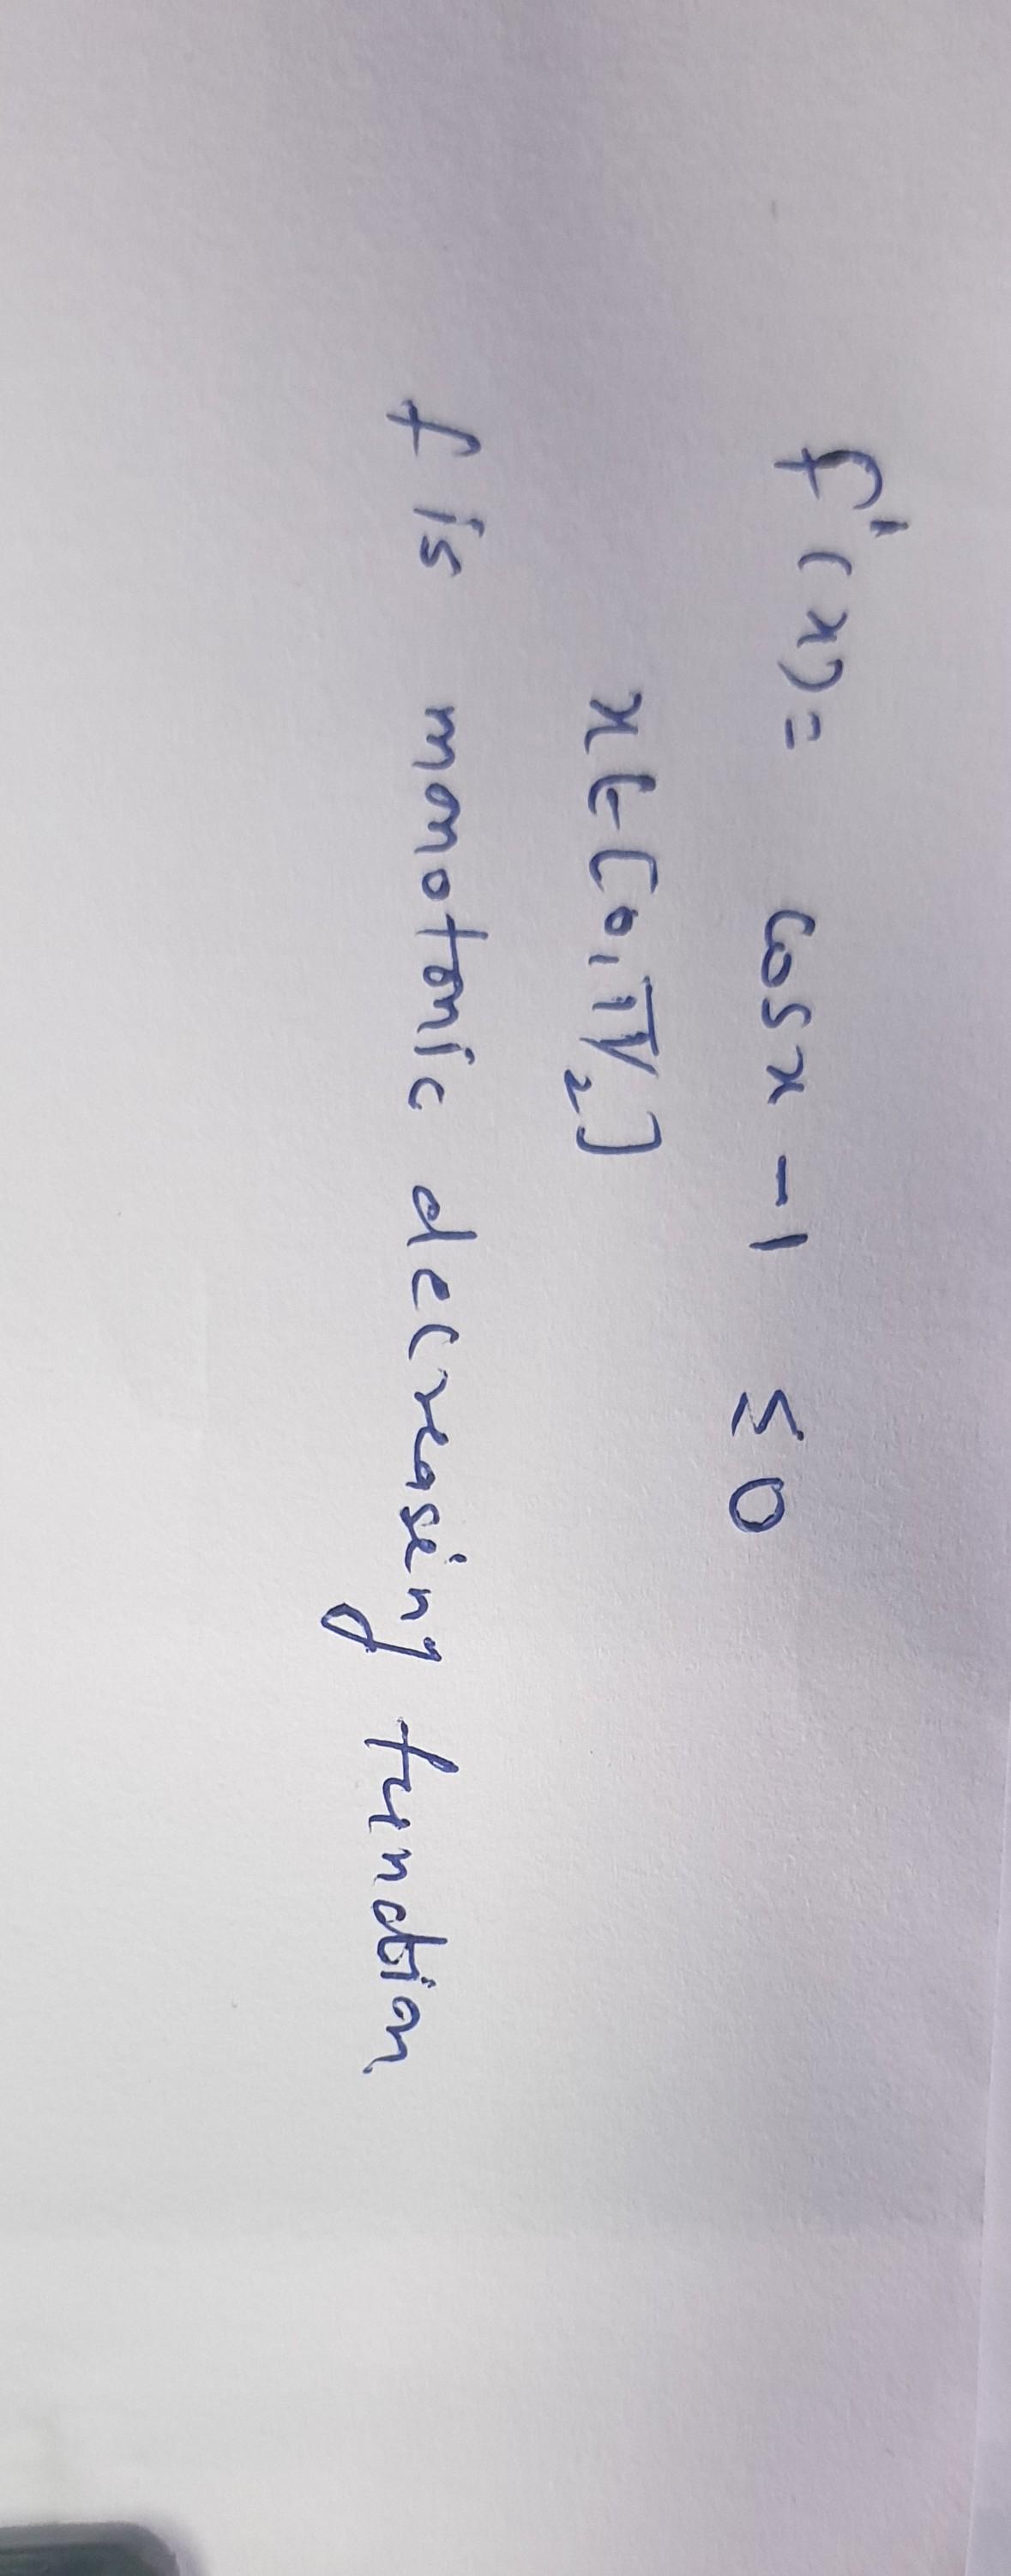 f'(x) = cos x - 1 ≤ 0
x ∈ [0, π/2]
f is monotonic decreasing function